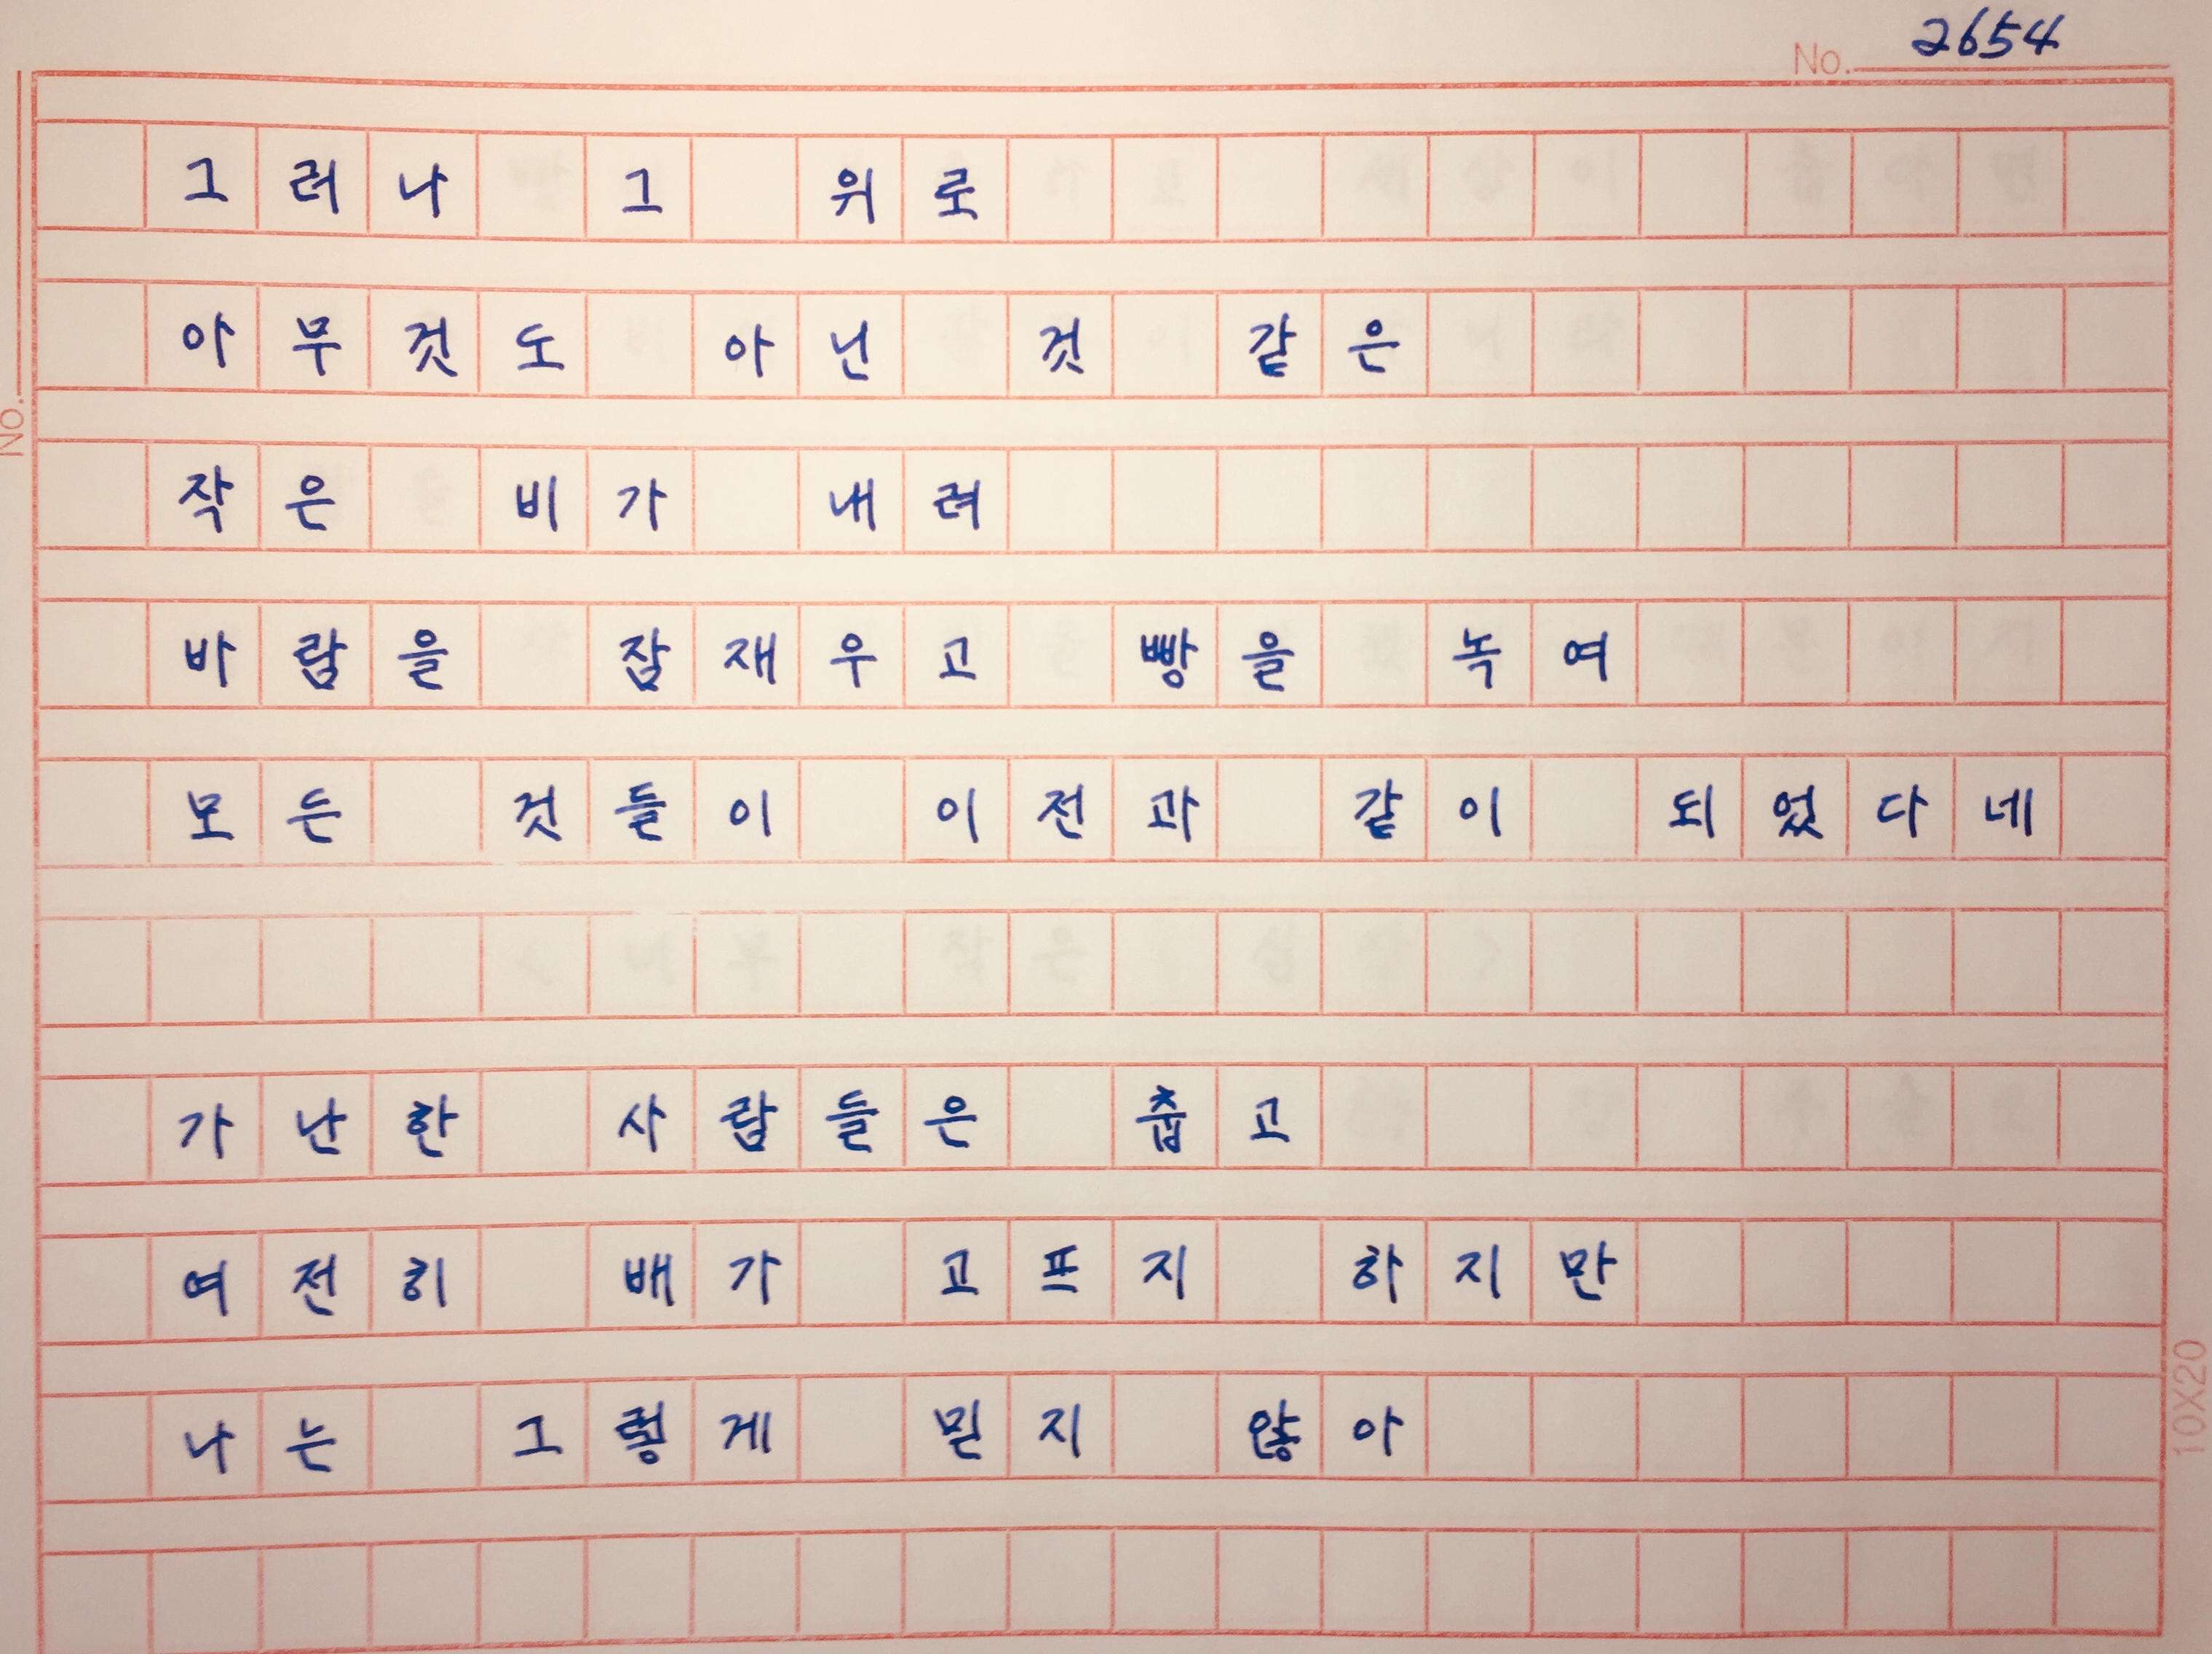 No. 2654
그러나 그 위로
아무것도 아닌 것 같은
작은 비가 내려
No.
바람을 잠재우고 빵을 녹여
모든 것들이 이전과 같이 되었다네
가난한 사람들은 춥고
여전히 배가 고프지 하지만
나는 그렇게 믿지 않아
10X20